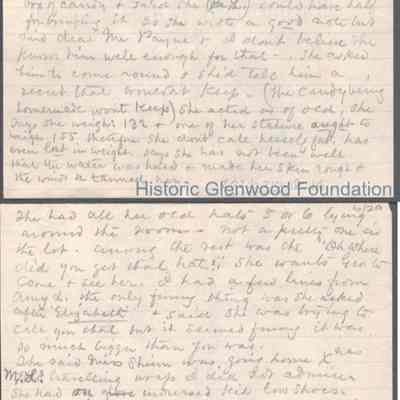 box of candy & said she could have half
for bringing it. So she wrote a good note but
said dear Mr Payne & I don't believe she
knows him well enough for that. She asked
him to come round & she'd tell him a
secret that wouldn't keep. (The candy being
homemade won't keep) She acted as of old. She
says she weighs 132 & one of her stature ought to
weigh 155. therefore she don't call herself fat. has
even lost in weight. says she has not been well
that the water was hard & made her skin rough &
the winds tanned
Historic Glenwood Foundation
She had all her old hats 5 or 6 lying
around the room - not a pretty one in
the lot. Among the rest was the "Oh where
did you get that hat"! She wants Geo to
come & see her. I had a few lines from
Amy S. the only funny thing was she asked
after "Elizabeth" & said she was trying to
call you that but it seemed funny it was
so much bigger than you was.
She said Miss Shinn was going home X has
travelling wraps I did not admire
She had undressed kid low shoes.